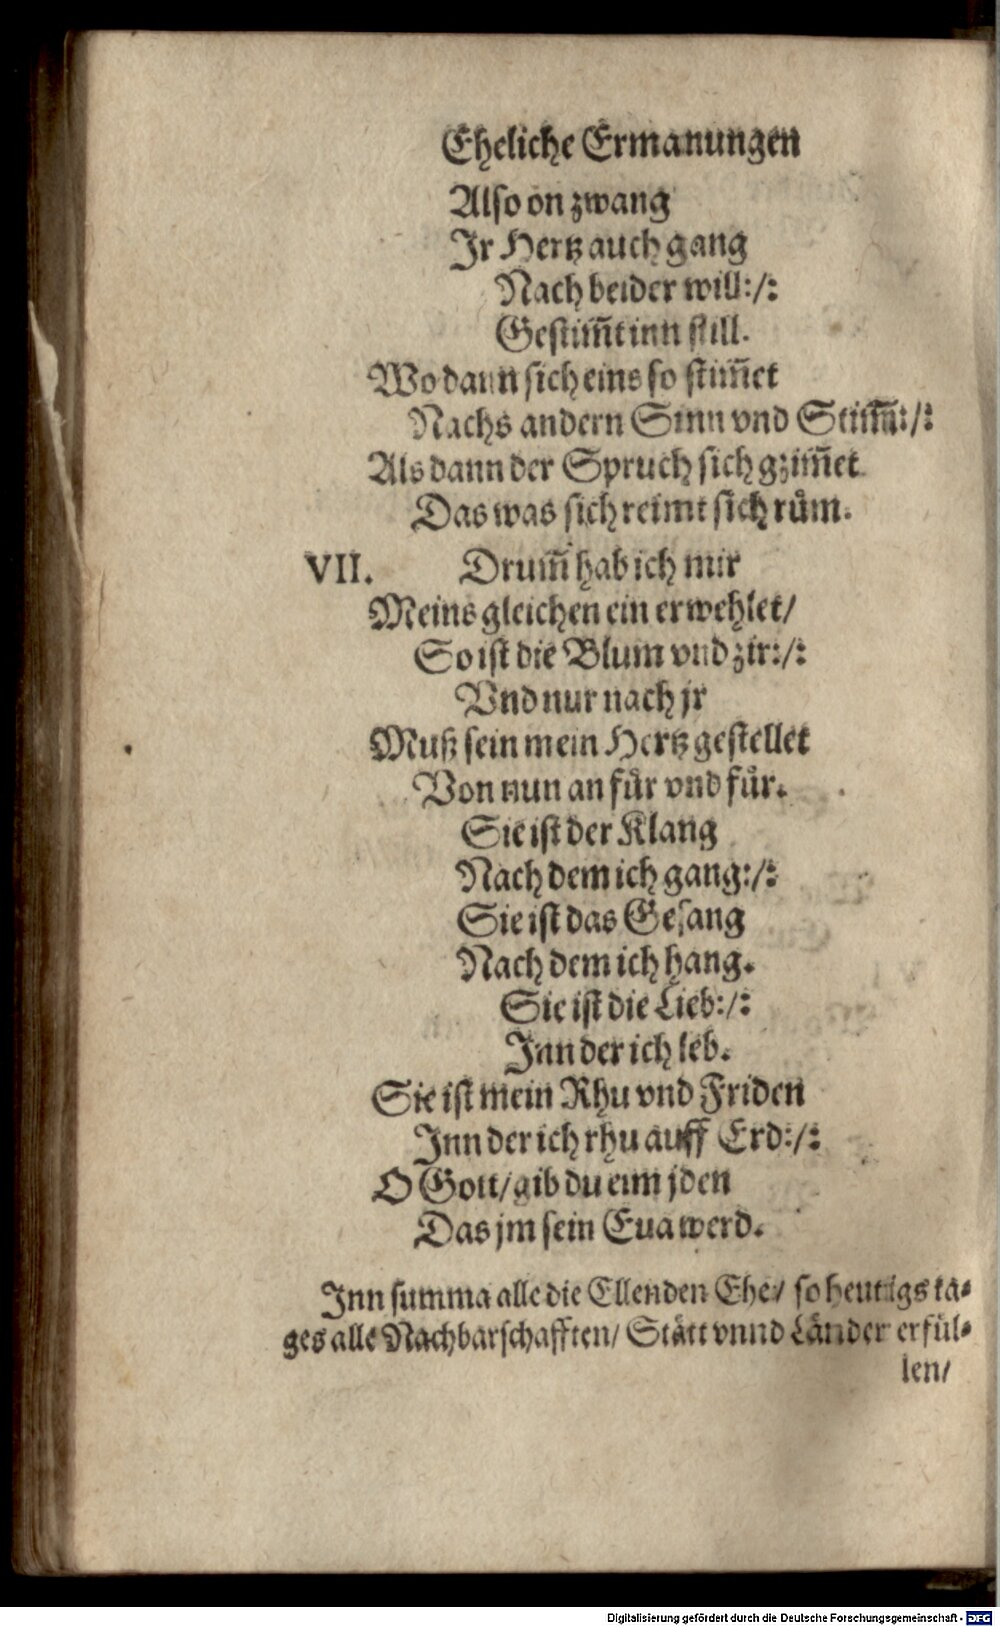 Eheliche Ermanungen
Also on zwang
Jr Hertz auch gang
Nach beider will:/:
Gestim̃t inn still.
Wo dann sich eins so stim̃et
Nachs andern Sinn vnd Stim̃:/:
Als dann der Spruch sich gzim̃et
Das was sich reimt sich rům.
VII. Drum̃ hab ich mir
Meins gleichen ein erwehlet/
So ist die Blum vnd zir:/:
Vnd nur nach jr
Muß sein mein Hertz gestellet
Von nun an fůr vnd fůr.
Sie ist der Klang
Nach dem ich gang:/:
Sie ist das Gesang
Nach dem ich hang.
Sie ist die Lieb:/:
Jnn der ich leb.
Sie ist mein Rhu vnd Friden
Jnn der ich rhu auff Erd:/:
O Gott/ gib du eim jden
Das jm sein Eua werd.
Jnn summa alle die Ellenden Ehe/ so heutigs ta-
ges alle Nachbarschafften/ Stått vnnd Lånder erfül-
len/
Digitalisierung gefördert durch die Deutsche Forschungsgemeinschaft - DFG